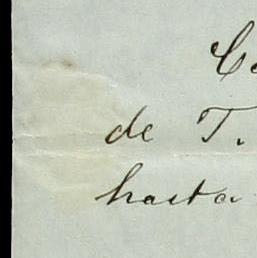 de T.
hasta